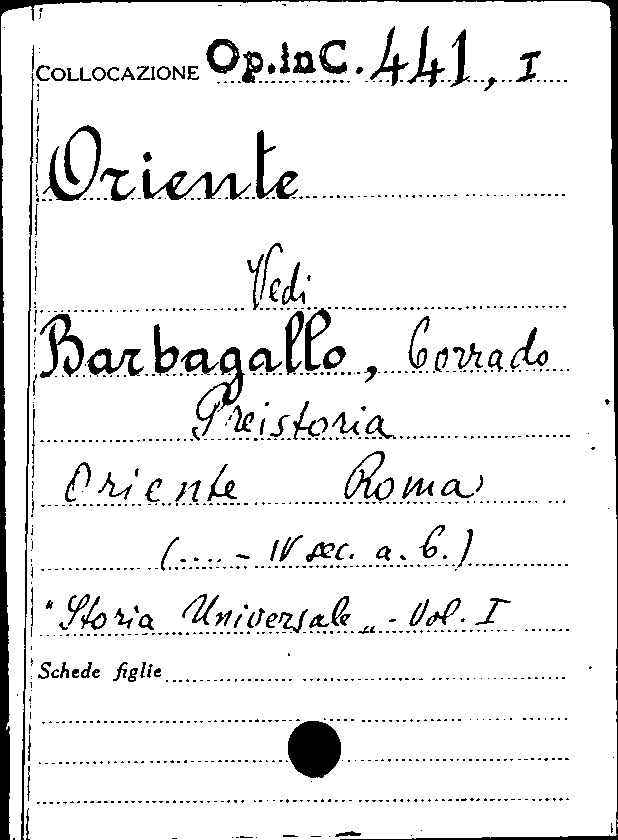 COLLOCAZIONE Op.inC. 441, I
Oriente
Vedi
Barbagallo, Corrado
Preistoria
Oriente Roma
(.... - IV sec. a. C.)
"Storia Universale„ - Vol. I
Schede figlie